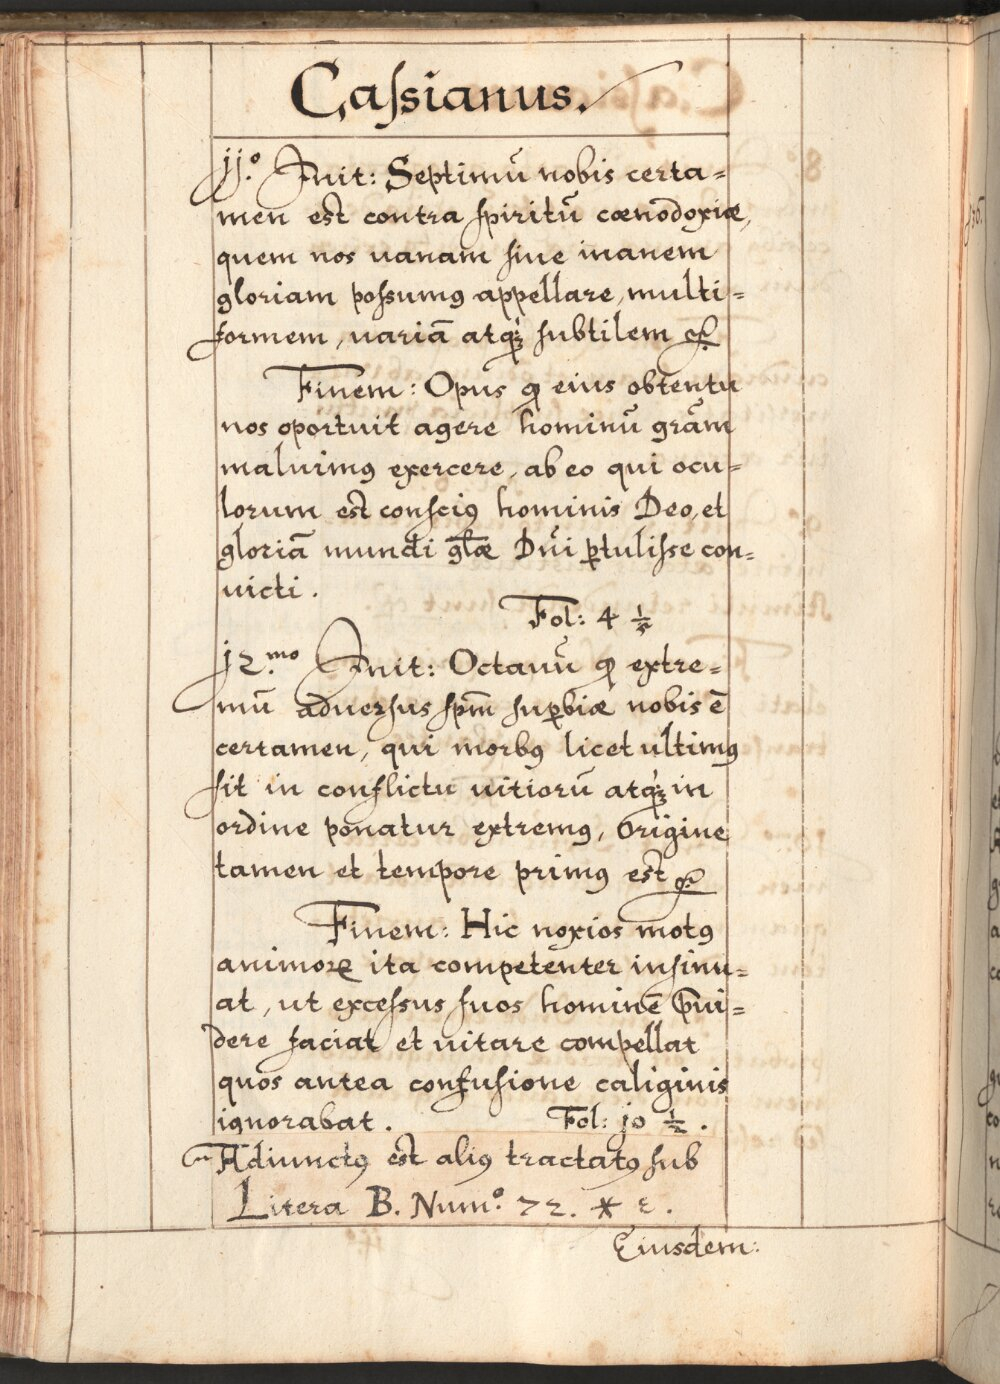 Caſsianus.
jj.º Init: Septimū nobis certa=
men est contra ſpiritū cœnodoxiæ,
quem nos uanam ſiue inanem
gloriam poſsumꝰ appellare, multi=
formem, uariā atq́ꝫ ſubtilem ꝛc.
Finem: Opus ꝙ eius obtentu
nos oportuit agere hominū grām
maluimꝰ exercere, ab eo qui ocu=
lorum est conſciꝰ hominis Deo, et
gloriā mundi glæ Dñi ꝑtuliſse con=
victi.
Fol: 4 ½
j2.mo Init: Octauū ꝙ extre=
mū aduerſus ſpm̄ ſuꝑbiæ nobis ē
certamen, qui morbꝰ licet ultimꝰ
ſit in conflictu uitiorū atq́ꝫ in
ordine ponatur extremꝰ, origine
tamen et tempore primꝰ est ꝛc.
Finem: Hic noxios motꝰ
animoꝝ ita competenter inſinu=
at, ut exceſsus ſuos hominē p̄ui=
dere faciat et uitare compellat
quos antea confuſione caliginis
ignorabat. Fol: jo ½.
Adiunctꝰ est aliꝰ tractatꝰ ſub
Litera B. Num.º 72. * 2.
Eiusdem: